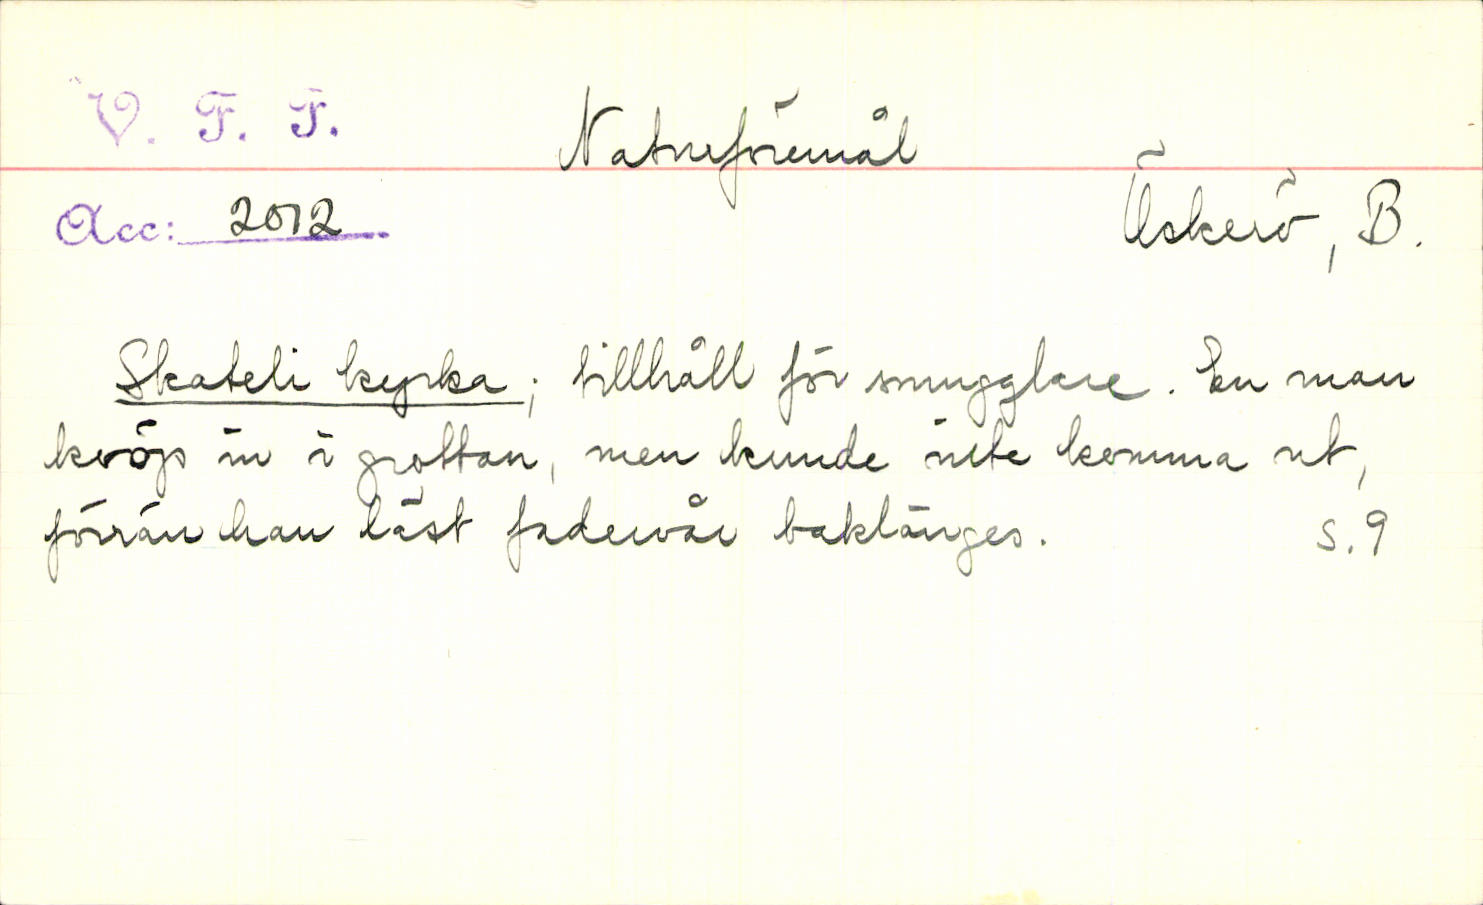 V. F. F.
Naturföremål
Acc: 2012
Öckerö, B.
Skateli kyrka; tillhåll för smugglare. En man
kröp in i grottan, men kunde inte komma ut,
förrän han läst fadervår baklänges. S. 9